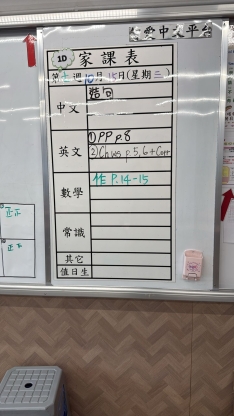 愛中文平台
1D 家課表
第七週10月15日(星期二)
中文
造句
英文
①PP p.8
②Ch ws p.5,6 + Corr
數學
作 P.14-15
常識
其它
值日生
正正
正正